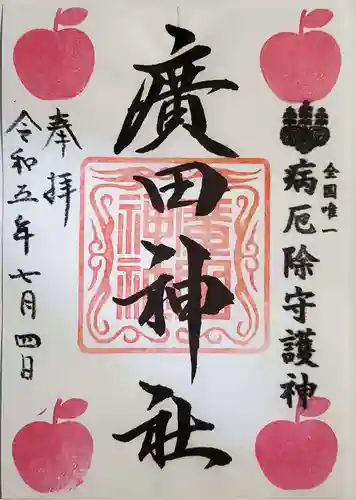 全国唯一
病厄除守護神
廣田神社
奉拝
令和五年七月四日
廣田
神社